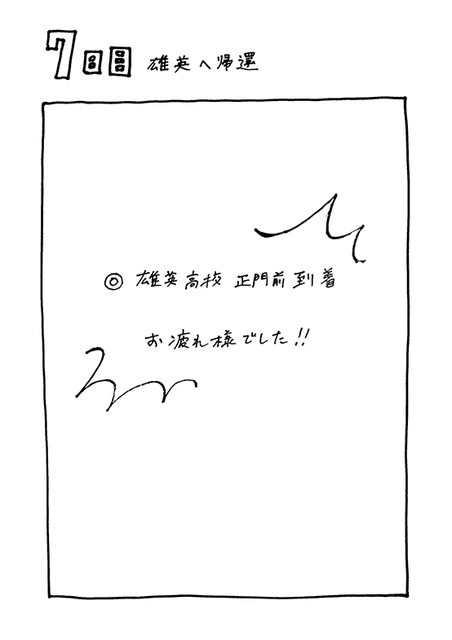 7日目 雄英へ帰還
◎ 雄英高校 正門前到着
お疲れ様でした!!